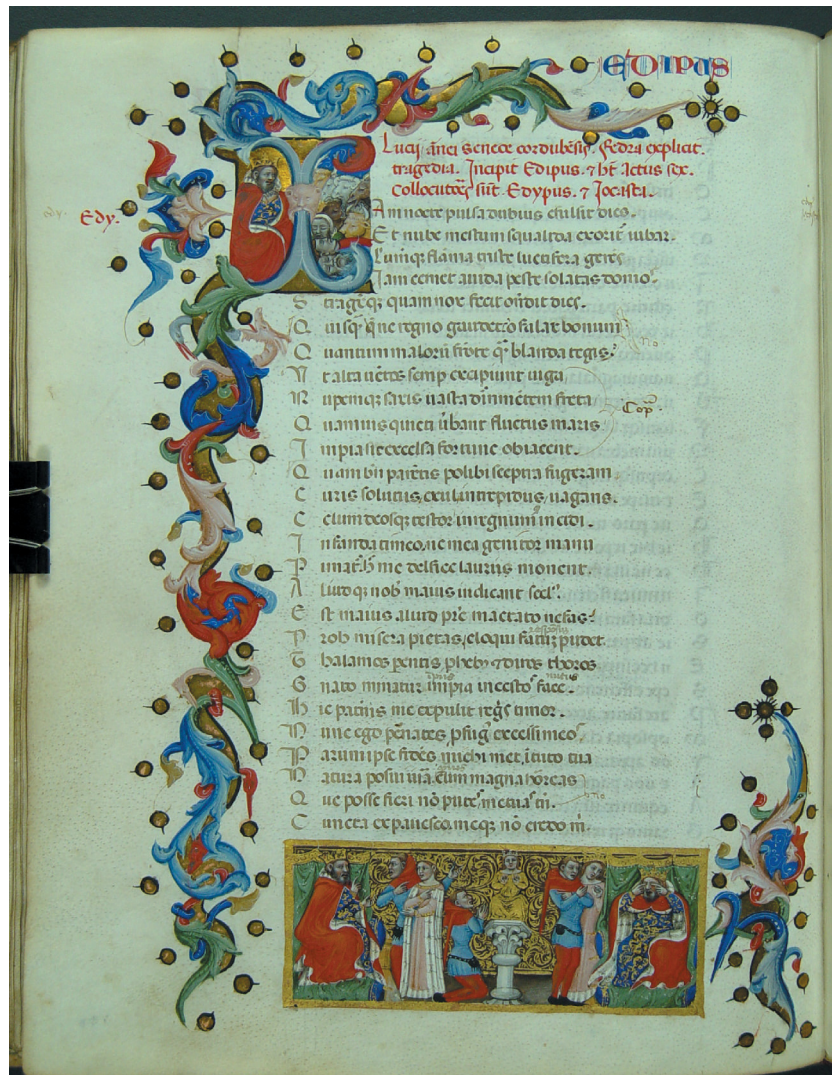 EDIPUS
Lucij ānei Senece cordubēsis. Fedra explicit.
tragedia. Incipit Edipus. ⁊ ht̄ Actus sex.
Collocutōres sūt. Edypus. ⁊ Jocasta.
Edy.
Iam nocte pulsa dubius effulsit dies.
Et nube mestum squalida exorit̄ iubar.
Lumq flāma tristē luctifera gerēs
Iam cernet auida peste solatas domos.
Stragēq; quam nox fecit ōndit dies.
Quisq̄ ne regno gaudet o falax bonum
Quantum malorū frōte q̄ blanda tegis.
Vt alta uētos semp excipiunt iuga
Rupemq; saxis uasta dirimētem freta
Cōp
Quamuis quieti ūberant fluctus maris
Impia sic excelsa fortune obiacent.
Quam bn̄ parētis polibi sceptra fugeram
Curis solutus, exul, intrepidus, uagans.
Celum deosq; testor in regnum incidi.
Infanda timeo, ne mea genitor manu
Pimat̄. h̄ me delfice laurus monent.
Aliudq; nob̄ maius indicant scel.
Est maius aliud pr̄e mactato nefas?
Prob misera pietas, eloqui fatū pudet.
Thalamos parentis phebus ⁊ diros thoros
Gnato minatur impia incestos face.
Hic patriis me expulit regnis timor.
Nunc ego penates, profugus excessi meos
Parum ipse fidēs michi met, ī tuto tua
Natura posui iura. cum magna horreas
no
Que posse fieri nō putes metuas tn̄.
Cuncta expauesco, meq; nō credo m̄.